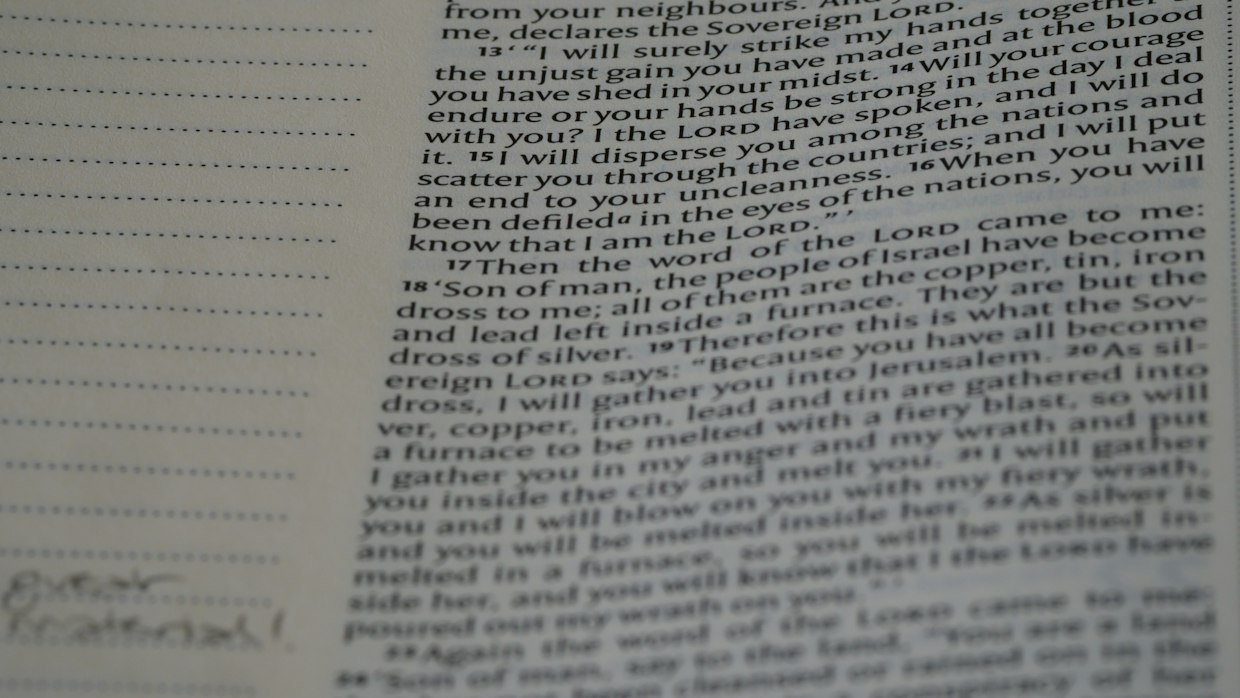 from your neighbours. And
me, declares the Sovereign LORD.
13 ‘“I will surely strike my hands together
the unjust gain you have made and at the blood
you have shed in your midst. 14 Will your courage
endure or your hands be strong in the day I deal
with you? I the LORD have spoken, and I will do
it. 15 I will disperse you among the nations and
scatter you through the countries; and I will put
an end to your uncleanness. 16 When you have
been defiled a in the eyes of the nations, you will
know that I am the LORD.”’
17 Then the word of the LORD came to me:
18 ‘Son of man, the people of Israel have become
dross to me; all of them are the copper, tin, iron
and lead left inside a furnace. They are but the
dross of silver. 19 Therefore this is what the Sov-
ereign LORD says: “Because you have all become
dross, I will gather you into Jerusalem. 20 As sil-
ver, copper, iron, lead and tin are gathered into
a furnace to be melted with a fiery blast, so will
I gather you in my anger and my wrath and put
you inside the city and melt you. 21 I will gather
you and I will blow on you with my fiery wrath,
and you will be melted inside her. 22 As silver is
melted in a furnace, so you will be melted in-
side her, and you will know that I the LORD have
poured out my wrath on you.”’
23 Again the word of the LORD came to me:
24 ‘Son of man, say to the land, “You are a land
been cleansed or rained on in the
material!